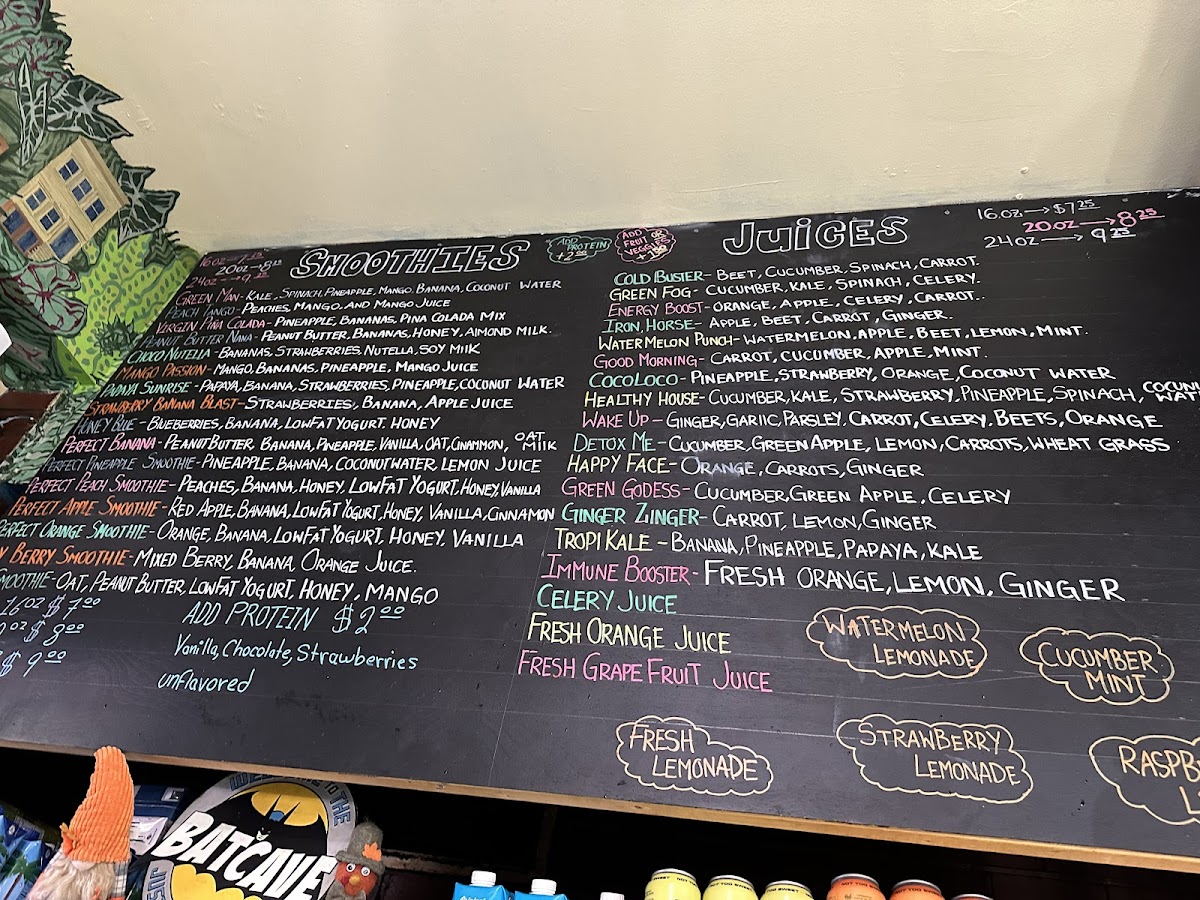 16oz
20oz→8 25
24oz→9 25
SMOOTHIES
ADD PROTEIN +2.00
ADD FRUIT OR VEGGIES
GREEN MAN - KALE, SPINACH, PINEAPPLE, MANGO, BANANA, COCONUT WATER
PEACH TANGO - PEACHES, MANGO, AND MANGO JUICE
VIRGIN PIÑA COLADA - PINEAPPLE, BANANAS, PINA COLADA MIX
PEANUT BUTTER NANA - PEANUT BUTTER, BANANAS, HONEY, ALMOND MILK.
CHOCO NUTELLA - BANANAS, STRAWBERRIES, NUTELLA, SOY MILK
MANGO PASSION - MANGO, BANANAS, PINEAPPLE, MANGO JUICE
PAPAYA SUNRISE - PAPAYA, BANANA, STRAWBERRIES, PINEAPPLE, COCONUT WATER
STRAWBERRY BANANA BLAST - STRAWBERRIES, BANANA, APPLE JUICE
HONEY BLUE - BLUEBERRIES, BANANA, LOWFAT YOGURT, HONEY
PERFECT BANANA - PEANUT BUTTER, BANANA, PINEAPPLE, VANILLA, OAT, CINNAMON, OAT MILK
PERFECT PINEAPPLE SMOOTHIE - PINEAPPLE, BANANA, COCONUT WATER, LEMON JUICE
PERFECT PEACH SMOOTHIE - PEACHES, BANANA, HONEY, LOWFAT YOGURT, HONEY, VANILLA
PERFECT APPLE SMOOTHIE - RED APPLE, BANANA, LOWFAT YOGURT, HONEY, VANILLA, CINNAMON
PERFECT ORANGE SMOOTHIE - ORANGE, BANANA, LOWFAT YOGURT, HONEY, VANILLA
Y BERRY SMOOTHIE - MIXED BERRY, BANANA, ORANGE JUICE.
SMOOTHIE - OAT, PEANUT BUTTER, LOWFAT YOGURT, HONEY, MANGO
16oz $7 00
0oz $8 00
$9 00
ADD PROTEIN $2 00
Vanilla, Chocolate, Strawberries
unflavored
JUICES
16.oz→$7 25
20.oz→8 25
24oz→9 25
COLD BUSTER - BEET, CUCUMBER, SPINACH, CARROT.
GREEN FOG - CUCUMBER, KALE, SPINACH, CELERY.
ENERGY BOOST - ORANGE, APPLE, CELERY, CARROT..
IRON, HORSE - APPLE, BEET, CARROT, GINGER.
WATERMELON PUNCH - WATERMELON, APPLE, BEET, LEMON, MINT.
GOOD MORNING - CARROT, CUCUMBER, APPLE, MINT.
COCO LOCO - PINEAPPLE, STRAWBERRY, ORANGE, COCONUT WATER
HEALTHY HOUSE - CUCUMBER, KALE, STRAWBERRY, PINEAPPLE, SPINACH,
WAKE UP - GINGER, GARLIC, PARSLEY, CARROT, CELERY, BEETS, ORANGE
DETOX ME - CUCUMBER, GREEN APPLE, LEMON, CARROTS, WHEAT GRASS
HAPPY FACE - ORANGE, CARROTS, GINGER
GREEN GODESS - CUCUMBER, GREEN APPLE, CELERY
GINGER ZINGER - CARROT, LEMON, GINGER
TROPI KALE - BANANA, PINEAPPLE, PAPAYA, KALE
IMMUNE BOOSTER - FRESH ORANGE, LEMON, GINGER
CELERY JUICE
FRESH ORANGE JUICE
FRESH GRAPE FRUIT JUICE
WATERMELON
LEMONADE
CUCUMBER
MINT
FRESH
LEMONADE
STRAWBERRY
LEMONADE
RASPB
L
TO THE
BATCAVE